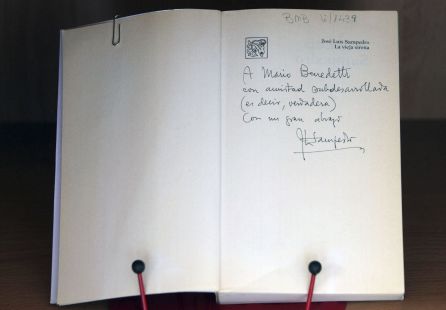 BMB 6/1439
José Luis Sampedro
La vieja sirena
A Mario Benedetti
con amistad subdesarrollada
(es decir, verdadera)
Con un gran abrazo
JLSampedro